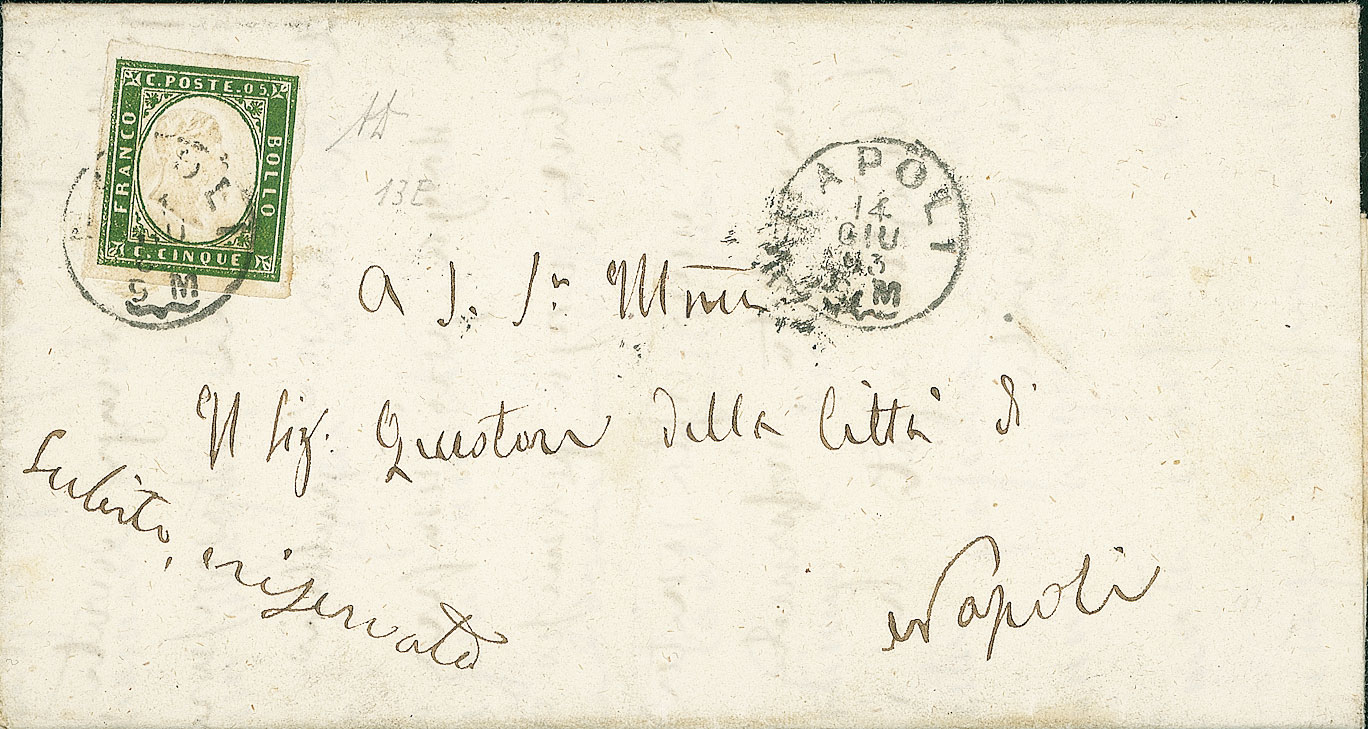 C. POSTE. 05.
FRANCO
BOLLO
C. CINQUE
9 M
AD
13E
NAPOLI
14
GIU
63
M
A S. Sr
Il Sig. Questore della Città di
Napoli
Subito, e riservata